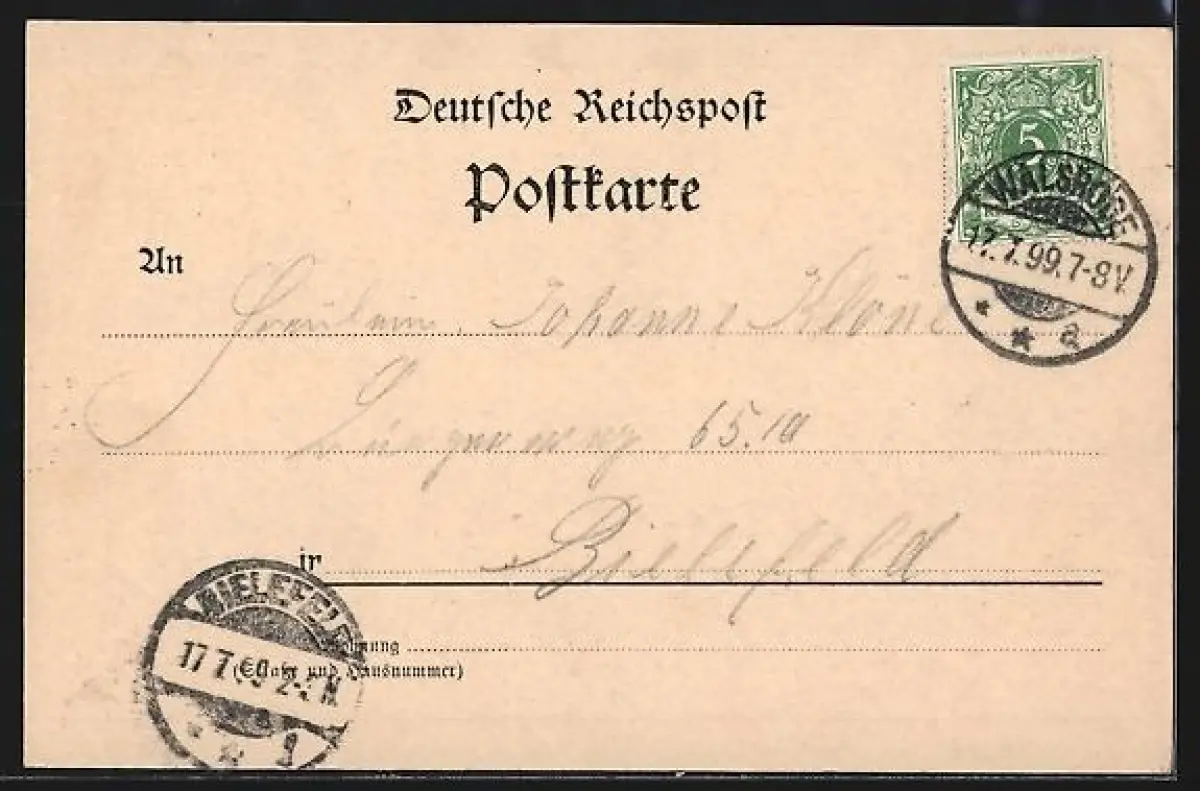 Deutsche Reichspost
Postkarte
5
WALSRODE
17.7.99.7-8V.
* * a
An
Fräulein Johanne Klöne
65.1a
in
Bielefeld
BIELEFELD
17 7 99 2-3 N
* * 1
Wohnung
(Straße und Hausnummer)